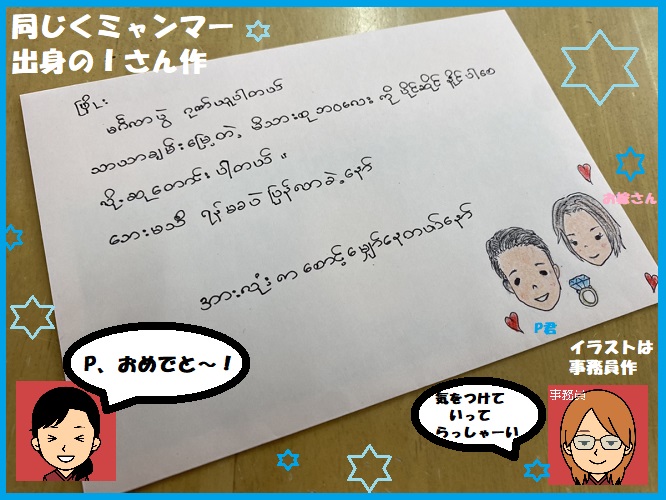 同じくミャンマー
出身のIさん作
ဖြိုး
မင်္ဂလာပွဲ ဂုဏ်ယူပါတယ်
သာယာချမ်းမြေ့တဲ့ မိသားစုဘဝလေး ကို ပိုင်ဆိုင် နိုင်ပါစေ
လို့ ဆုတောင်း ပါတယ် ။
ဘေးမသီ ရန်မခပဲ ပြန်လာခဲ့နော်
အားလုံး က စောင့်မျှော်နေတယ်နော်
お嫁さん
P君
イラストは
事務員作
P、おめでと～！
気をつけて
いって
らっしゃーい
事務員